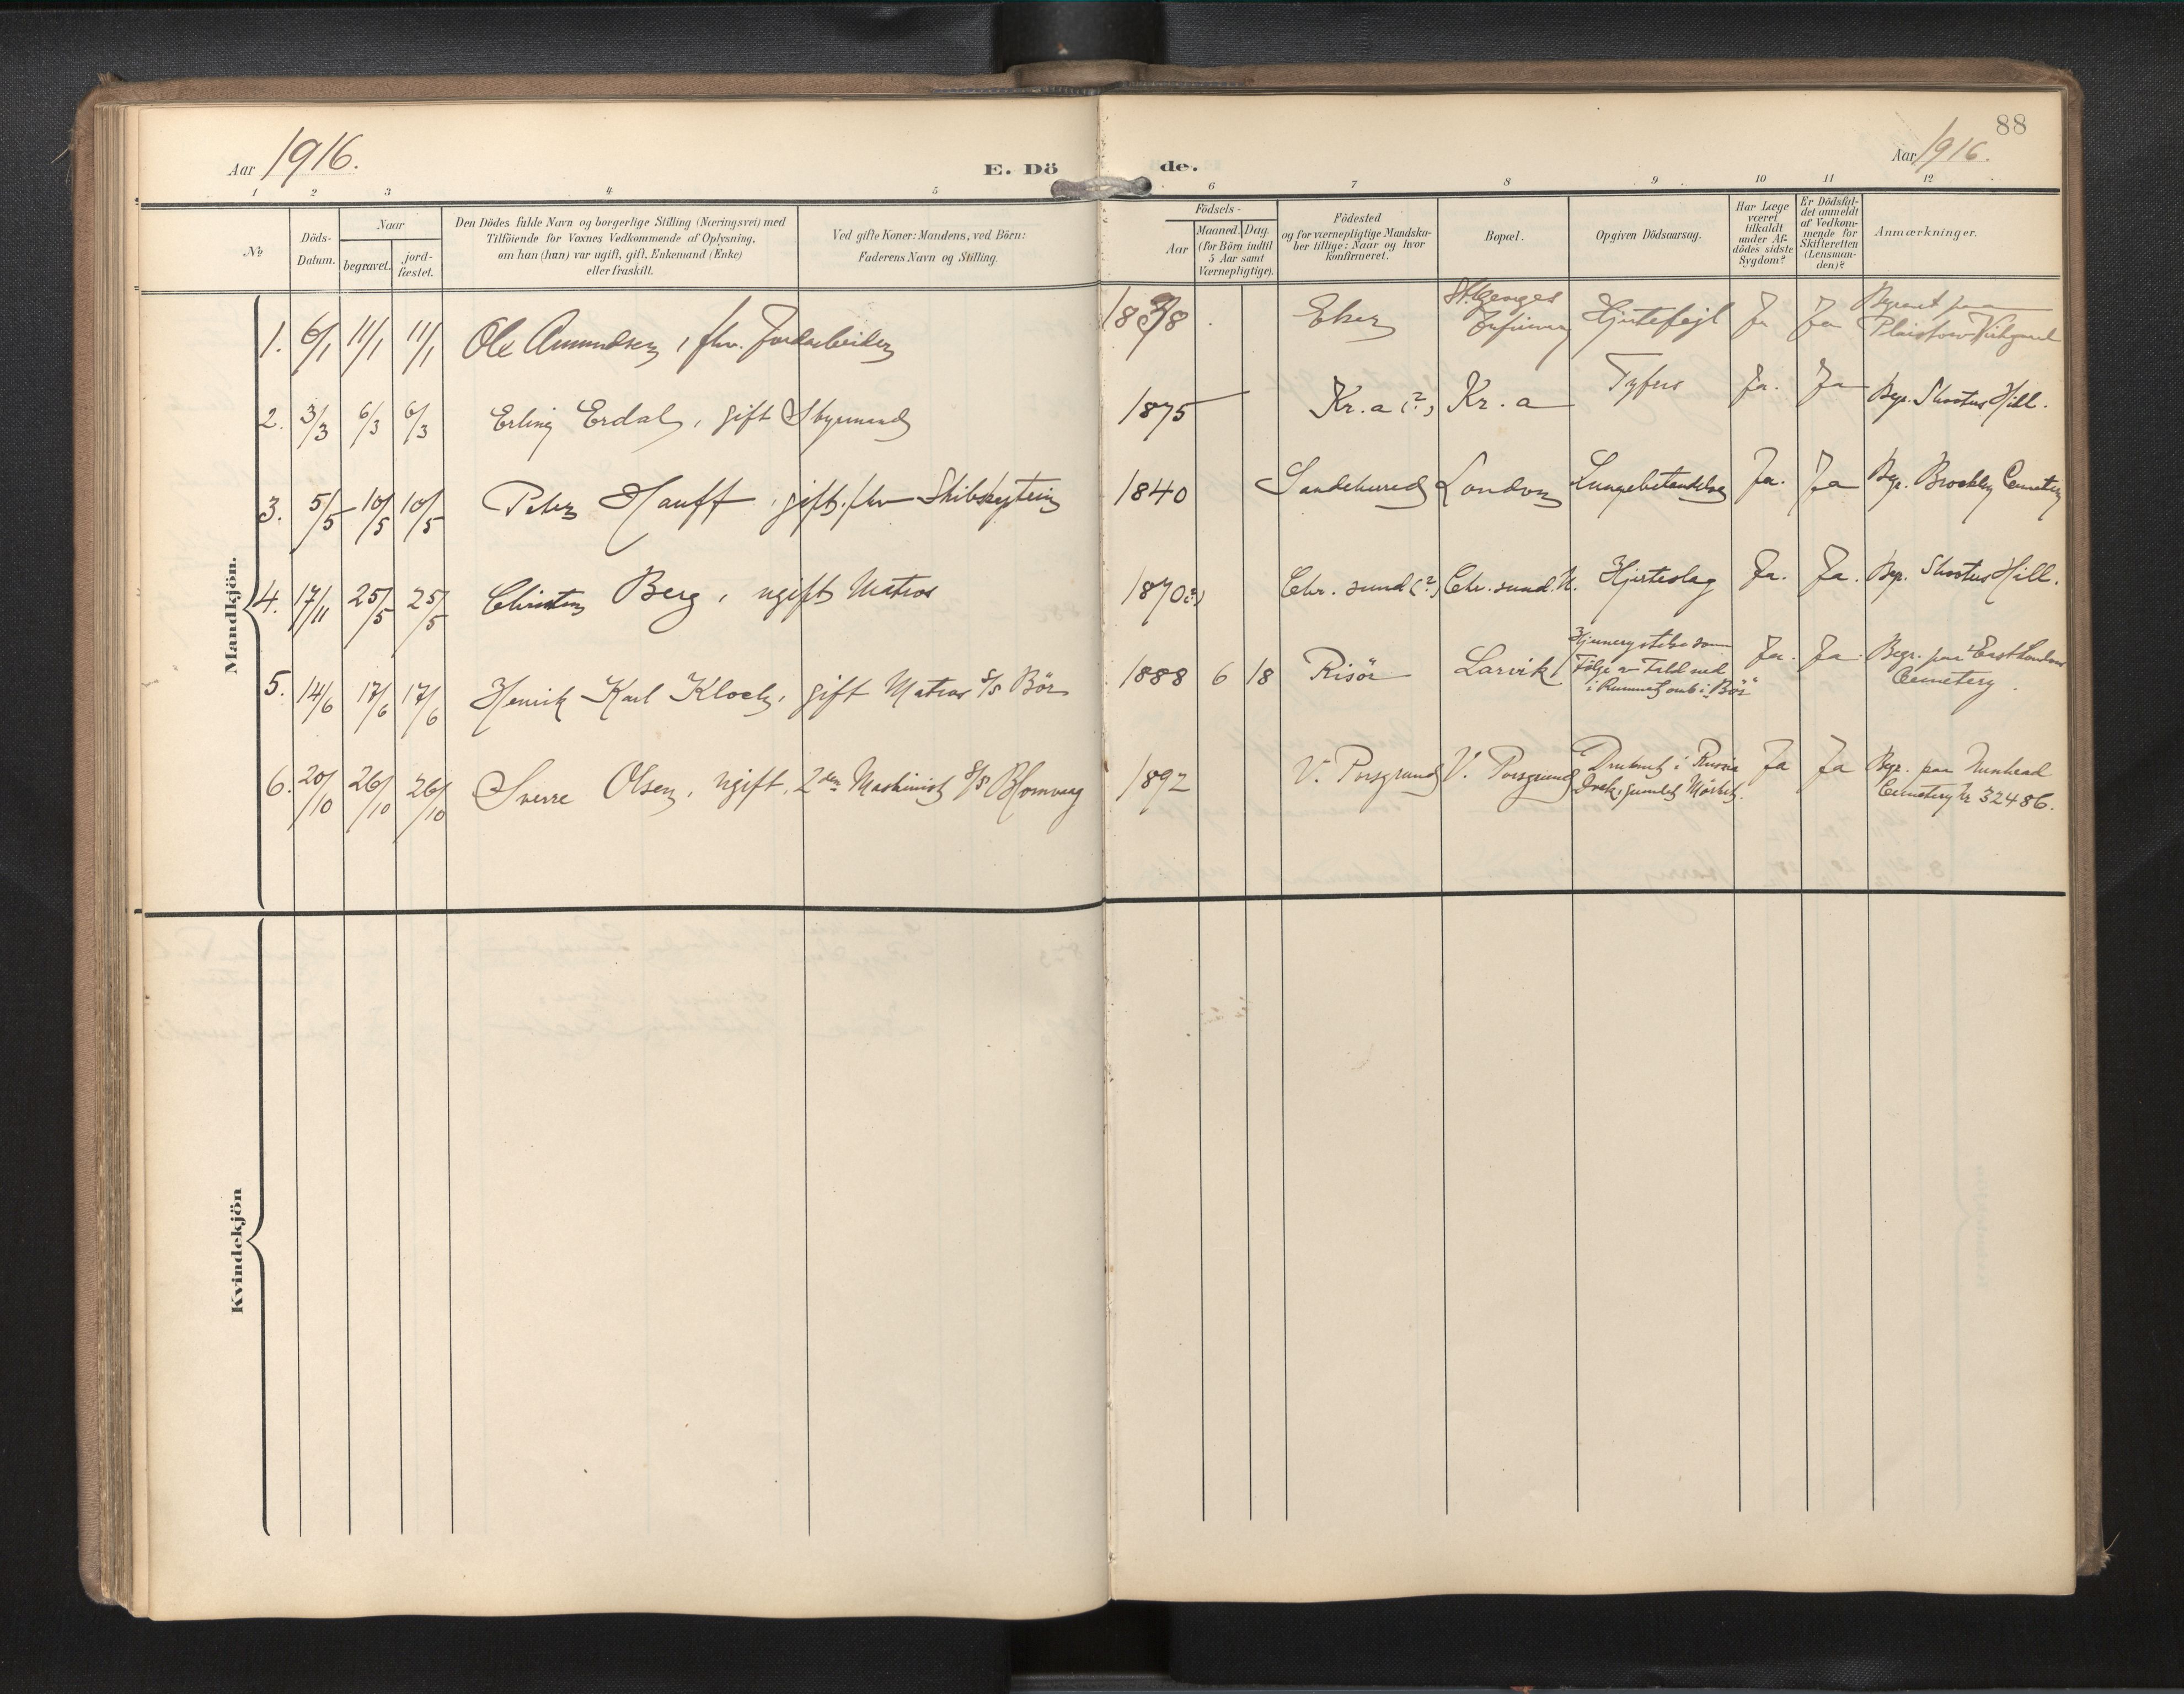 88
Aar 1916.
E. Dö
de.
Aar 1916.
1 2 3 4 5 6 7 8 9 10 11 12
No
Döds-
Datum.
Naar
begravet.
jord-
fæstet.
Den Dödes fulde Navn og borgerlige Stilling (Næringsvei) med
Tilföiende for Voxnes Vedkommende af Oplysning,
om han (hun) var ugift, gift, Enkemand (Enke)
eller fraskilt.
Ved gifte Koner: Mandens, ved Börn:
Faderens Navn og Stilling.
Födsels-
Aar
Maaned. Dag.
(for Börn indtil
5 Aar samt
Værnepligtige).
Födested
og for værnepligtige Mandska-
ber tillige: Naar og hvor
konfirmeret.
Bopæl.
Opgiven Dödsaarsag.
Har Læge
været
tilkaldt
under Af-
dödes sidste
Sygdom?
Er Dödsfal-
det anmeldt
af Vedkom-
mende for
Skifteretten
(Lensman-
den)?
Anmærkninger.
Mandkjön.
1. 6/1 11/1 11/1 Ole Amundsen, fhv. Jordarbeider 1838 Eker St. Georges Hjertefejl Ja Ja
Plaistow Kirkgaard
2. 3/3 6/3 6/3 Erling Erdal, gift Styrmand 1875 Kr.a (?) Kr.a Tyfus Ja. Ja Begr. Shooters Hill.
3. 5/5 10/5 10/5 Peter Hauff, gift, fhv Skibskaptein 1840 Sandeherred London Lungebetændelse Ja. Ja Begr. Brockley Cemetery
4. 17/11 25/5 25/5 Christen Berg, ugift Matros 1870(?) Chr. sund (?) Chr. sund. N. Hjerteslag Ja. Ja. Begr. Shooters Hill.
5. 14/6 17/6 17/6 Henrik Karl Klock, gift Matros S/S Bör 1888 6 18 Risör Larvik Hjernerystelse som Ja. Ja. Begr. paa East London
Følge av Fald ned Cemetery.
i Rummet omb i "Bör"
6. 20/10 26/10 26/10 Sverre Olsen, ugift, 2den Maskinist S/S Blomvaag 1892 V. Porsgrund V. Porsgrund Druknet i Russia Ja Ja Begr. paa Nunhead
Dock, grundet Mörket. Cemetery Nr 32486.
Kvindekjön